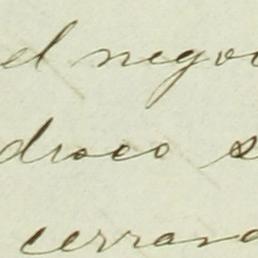 el nego
droco s
cerrand